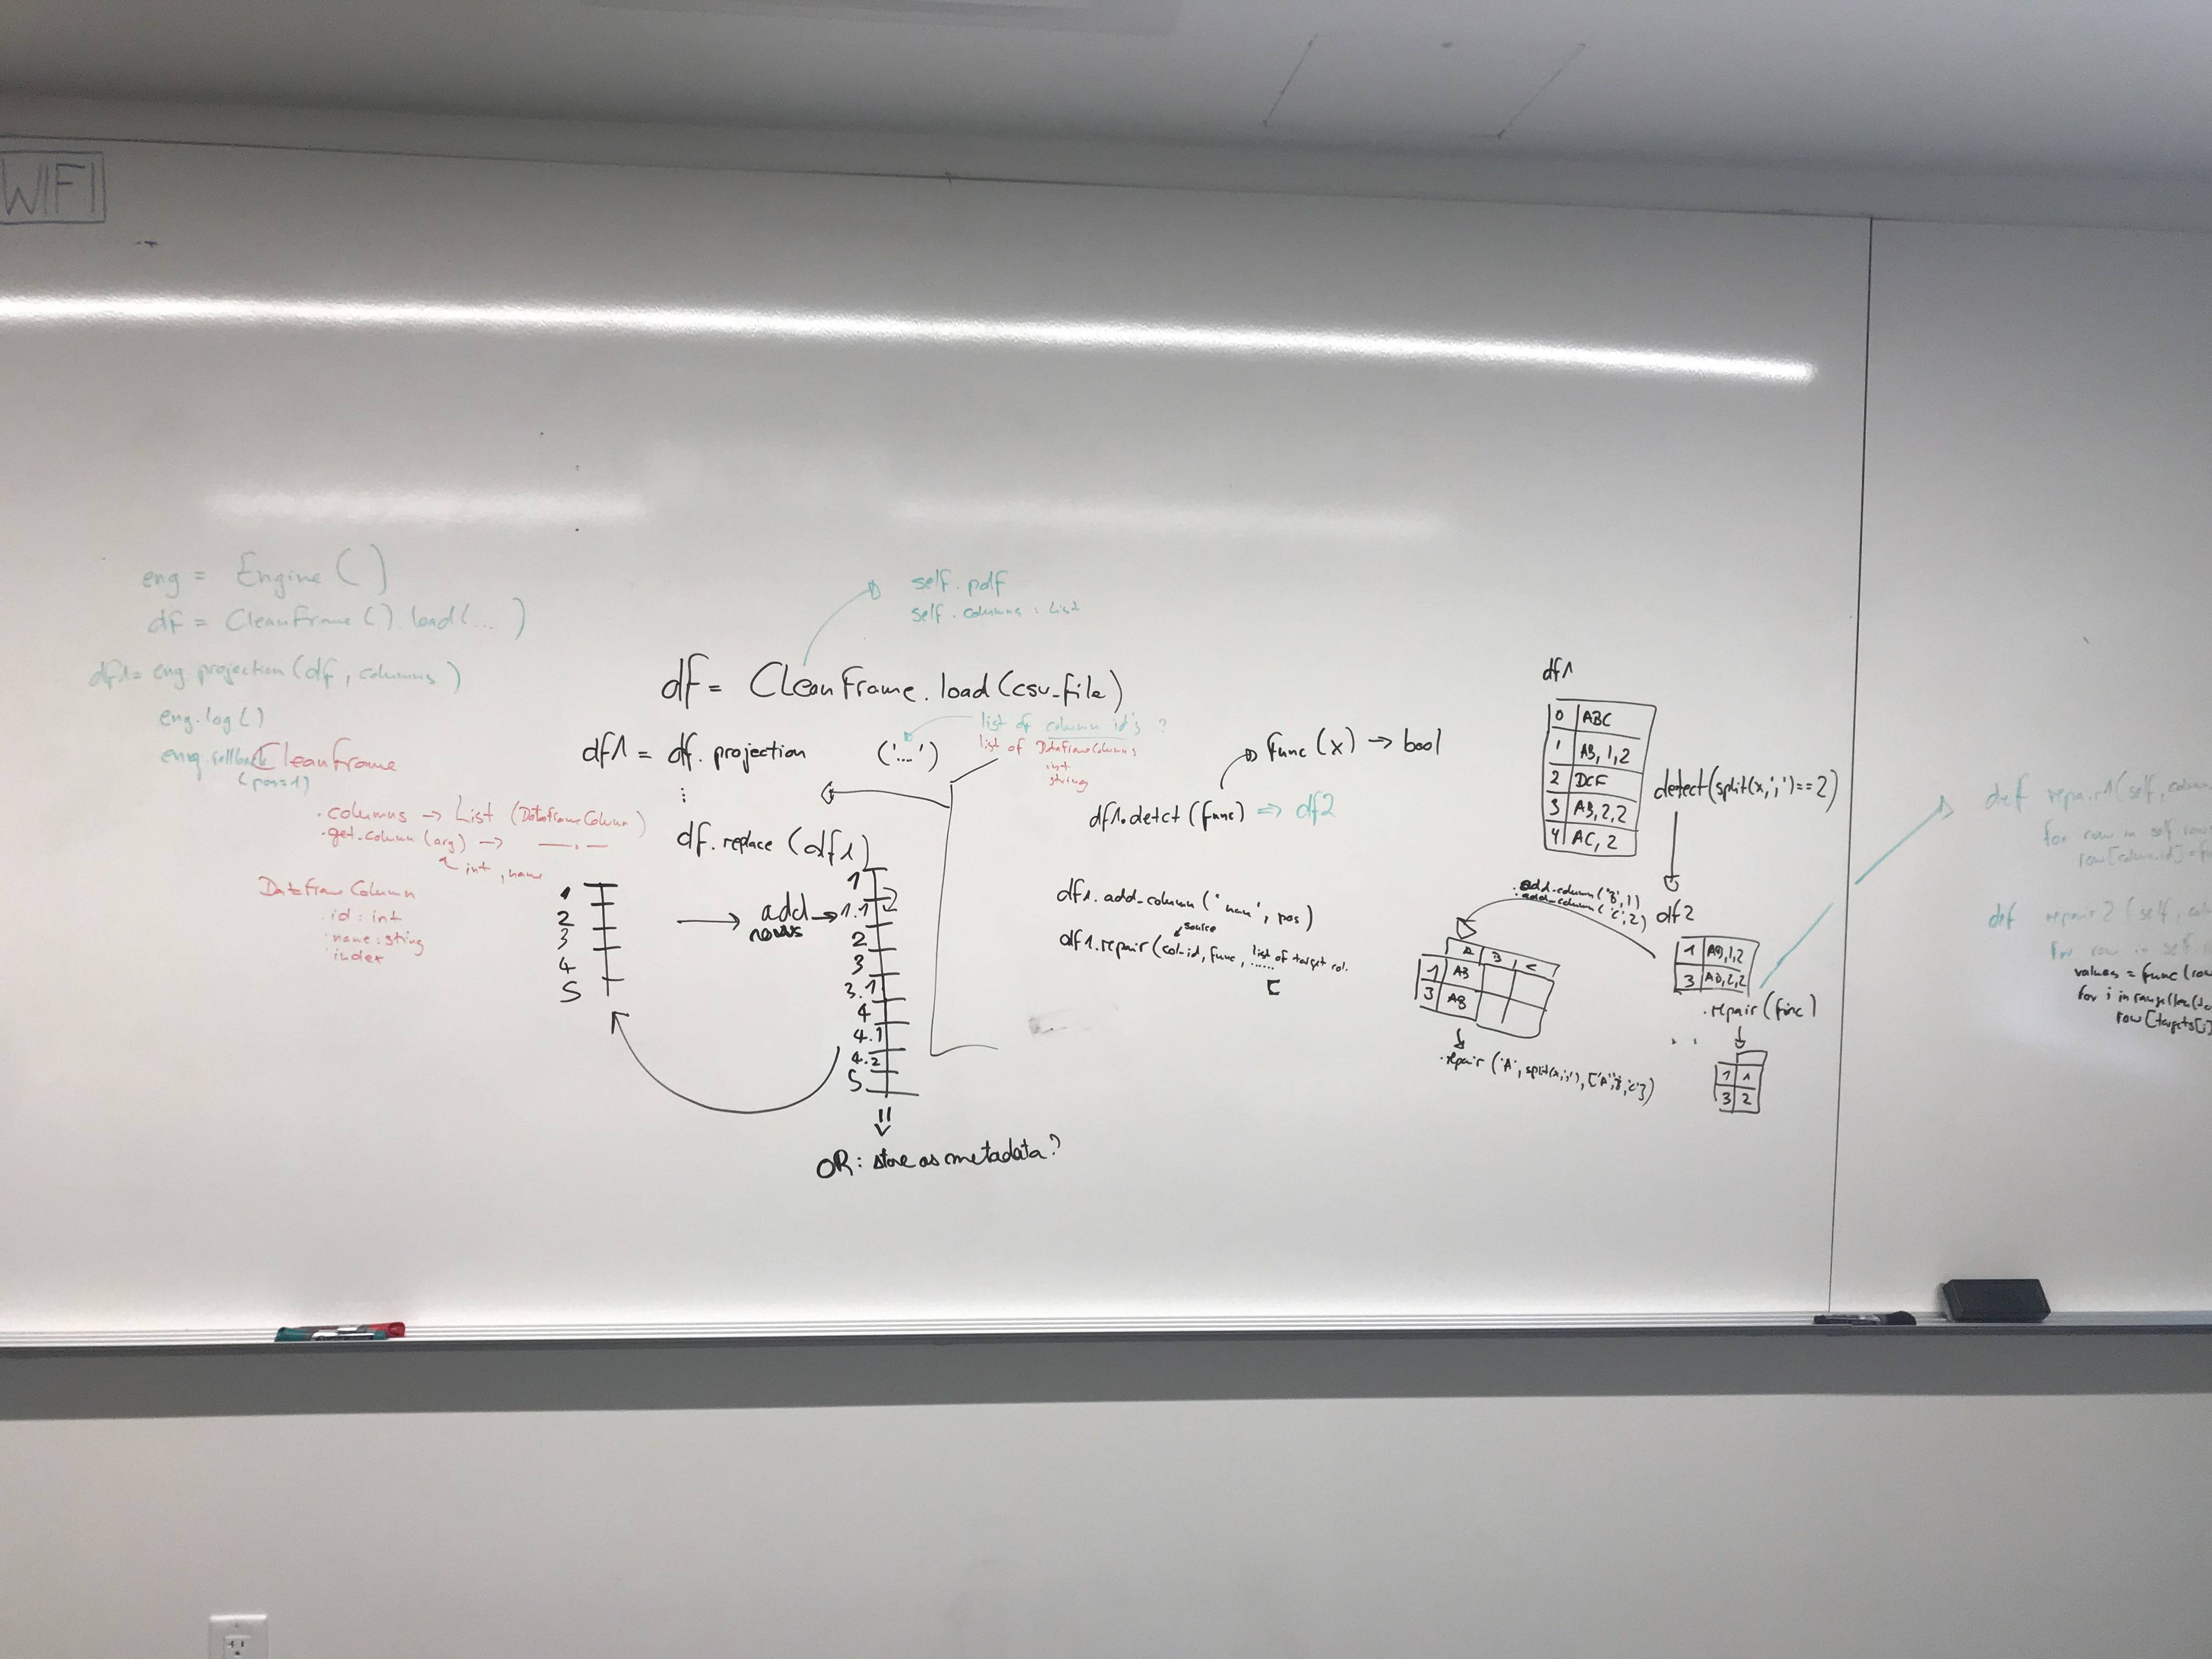 WIFI
eng = Engine ( )
df = CleanFrame ( ) . load ( ... )
df1 = eng. projection (df , columns )
eng. log ( )
eng. rollback
(pos=1)
CleanFrame
. columns → List (DataFrameColumn)
. get_column (arg) →
int , name
DataFrameColumn
. id : int
. name : string
. index
self. pdf
self. columns : List
df = CleanFrame. load (csv_file)
df1 = df. projection ('....')
list of column id's ?
list of DataFrameColumns
int
string
⋮
df. replace (df1)
1
2
3
4
5
→ add →
rows
1
1.1
2
3
3.1
4
4.1
4.2
5
OR: store as metadata?
func (x) → bool
df1. detct (func) ⇒ df2
df1. add_column (' nam ' , pos )
source
df1. repair (col-id, func , list of target col.
[
df1
0 ABC
1 AB, 1,2
2 DCF
3 AB, 2,2
4 AC, 2
detect(split(x,',')==2)
. add_column ('B', 1)
. add_column ('C', 2)
df2
1 AB,1,2
3 AB,2,2
. repair (func)
1 1
3 2
A B C
1 AB
3 AB
. repair ('A', split(x,','), ['A','B','C'])
def repair1 (self, colum
for row in self. row
row [columnid] = f
def repair2 ( self , col
for row in self.
values = func (row
for i in range (len(
row [targets[i]